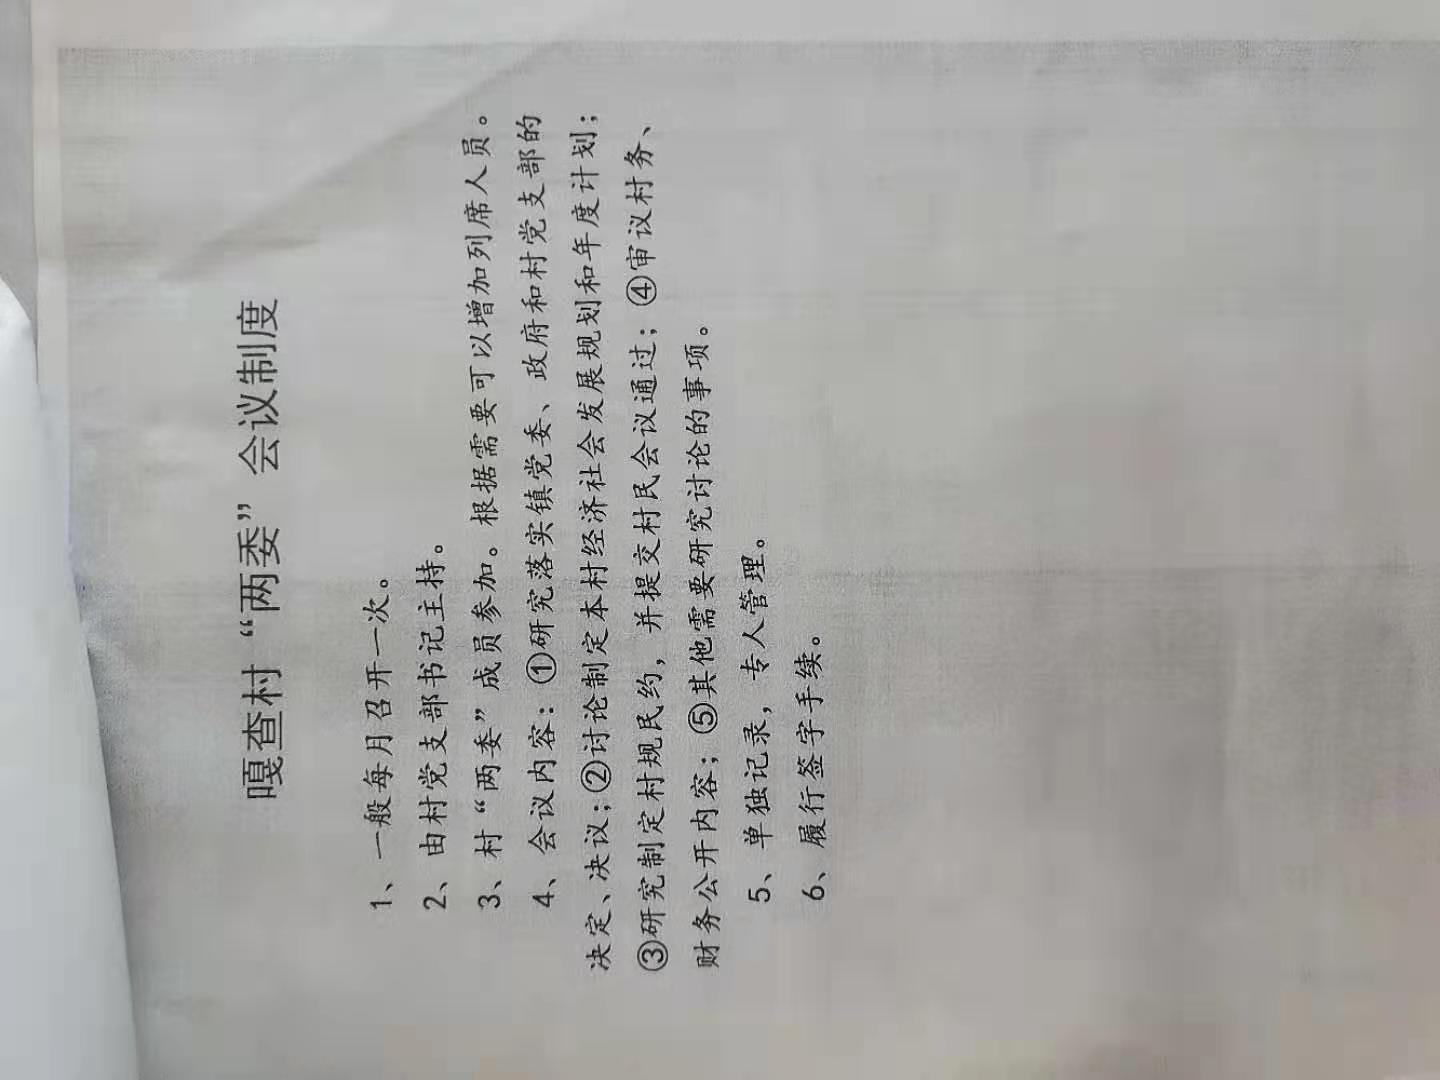 嘎查村“两委”会议制度
1、一般每月召开一次。
2、由村党支部书记主持。
3、村“两委”成员参加。根据需要可以增加列席人员。
4、会议内容：①研究落实镇党委、政府和村党支部的
决定、决议；②讨论制定本村经济社会发展规划和年度计划；
③研究制定村规民约，并提交村民会议通过；④审议村务、
财务公开内容；⑤其他需要研究讨论的事项。
5、单独记录，专人管理。
6、履行签字手续。